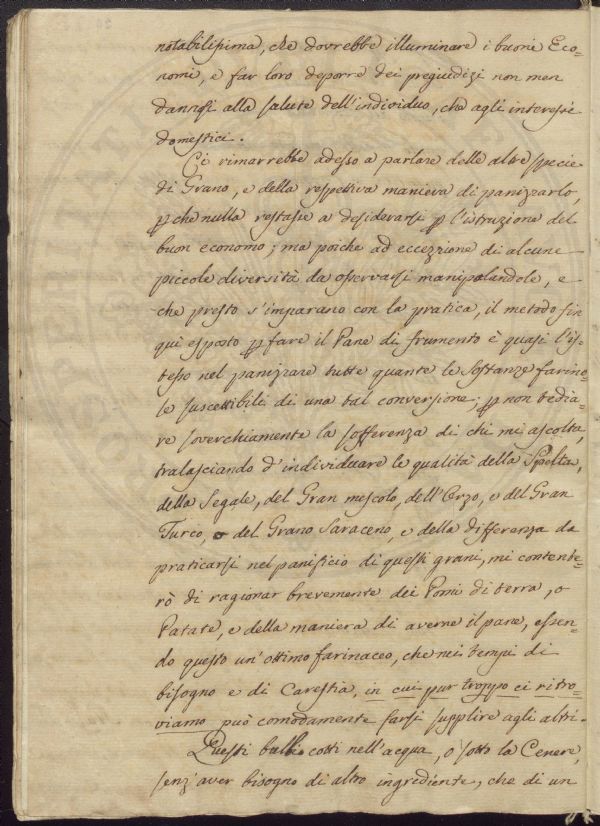 notabilissima, che dovrebbe illuminare i buoni Eco=
nomi, e far loro deporre dei pregiudizi non men
dannosi alla salute dell'individuo, che agli interessi
domestici.
Ci rimarrebbe adesso a parlare delle altre specie
di Grano, e della respettiva maniera di panizzarlo,
p che nulla restasse a desiderarsi p l'istruzione del
buon economo; ma poiche ad eccezzione di alcune
piccole diversità da osservarsi manipolandole, e
che presto s'imparano con la pratica, il metodo fin
qui esposto p fare il Pane di frumento è quasi l'is-
tesso nel panizzare tutte quante le sostanze farino=
se suscettibili di una tal conversione; p non tedia=
re soverchiamente la sofferenza di chi mi ascolta,
tralasciando d'individuare le qualità della Spelta,
della Segale, del Gran mescolo, dell'Orzo, e del Gran
Turco, o del Grano Saraceno, e della differenza da
praticarsi nel panificio di questi grani, mi contente=
rò di ragionar brevemente dei Pomi di terra, o
Patate, e della maniera di averne il pane, essen=
do questo un'ottimo farinaceo, che nei tempi di
bisogno e di Carestia, in cui pur troppo ci ritro=
viamo può comodamente farsi supplire agli altri.
Questi bulbi cotti nell'acqua, o sotto la Cenere,
senz'aver bisogno di altro ingrediente, che di un